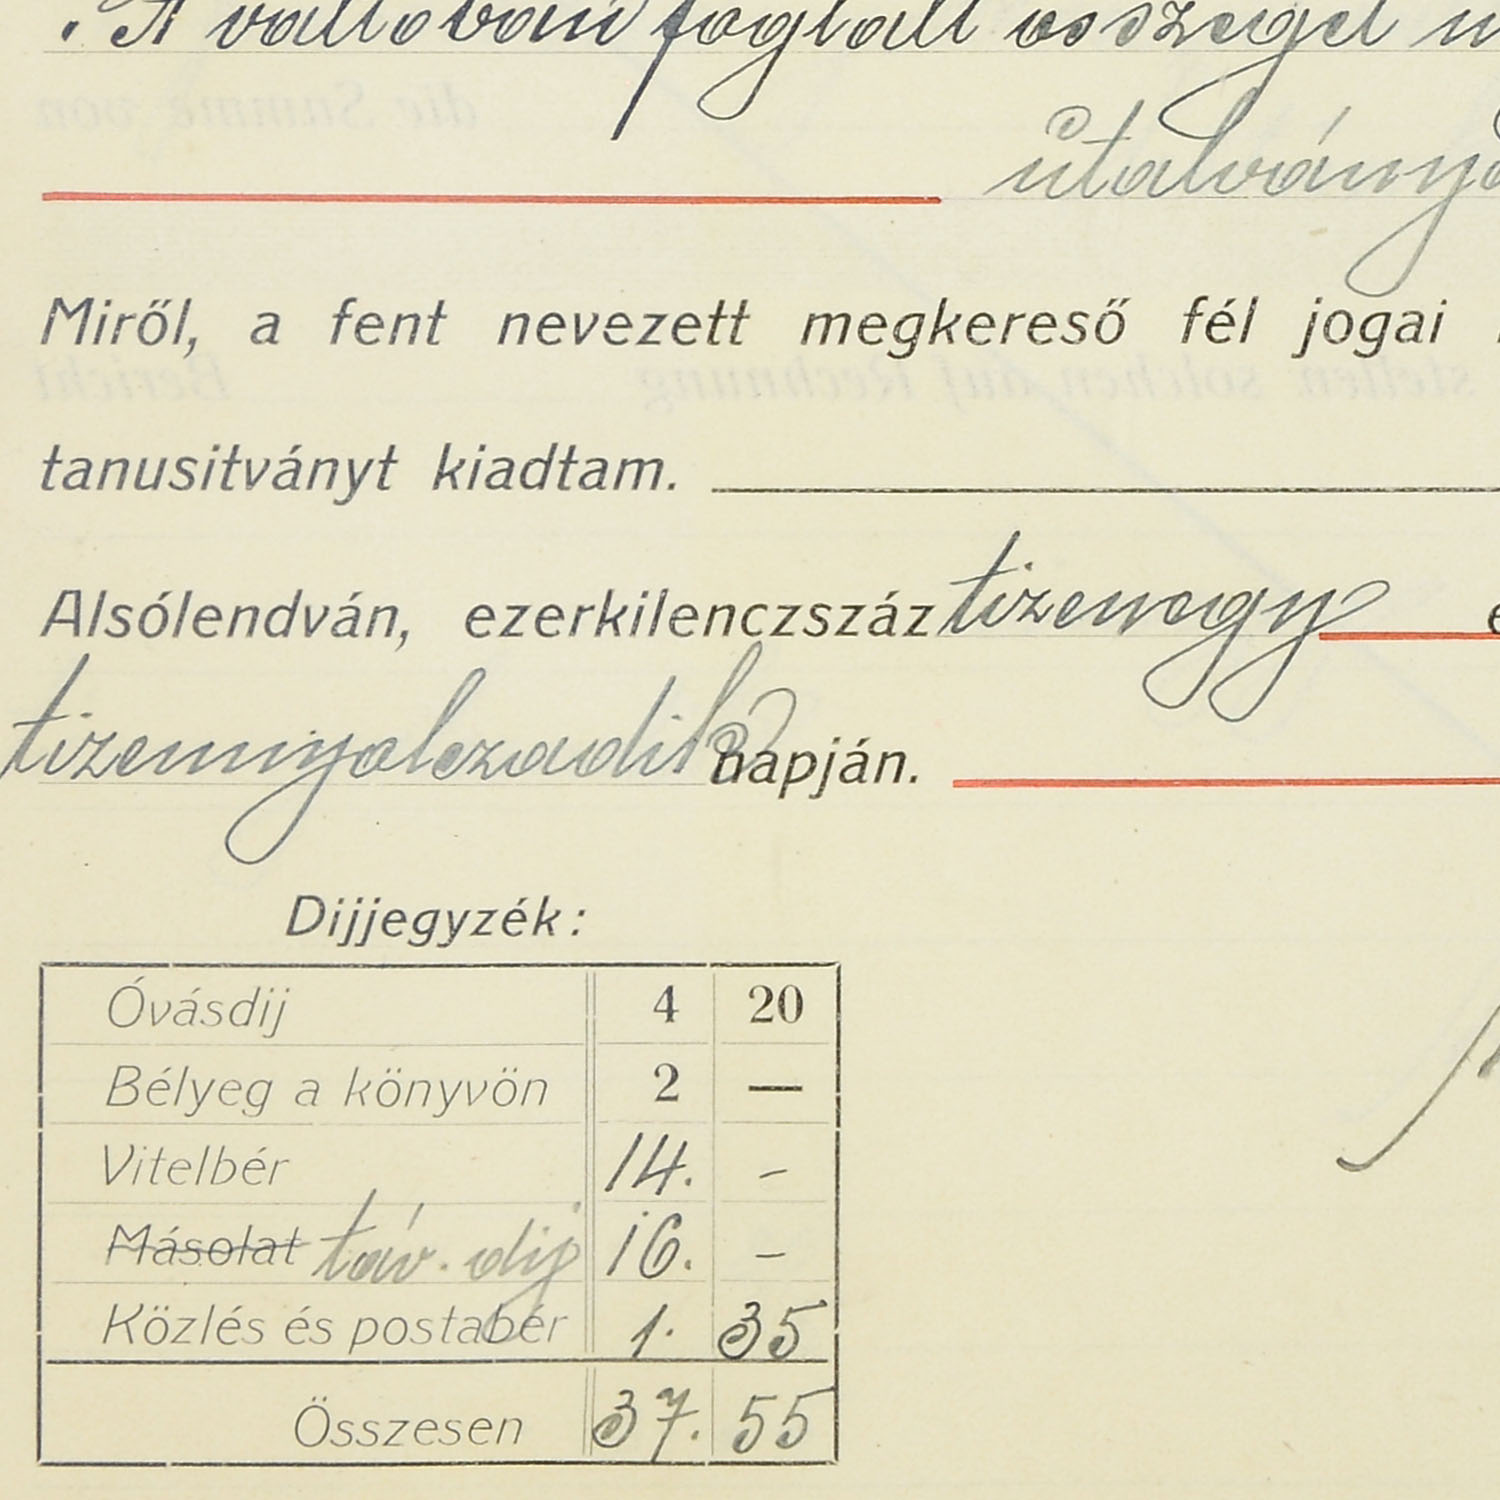 A váltóban foglalt összeget
útalvány
Miről, a fent nevezett megkereső fél jogai
tanusitványt kiadtam.
Alsólendván, ezerkilenczszáz tizenegy
tizennyolczadik napján.
Dijjegyzék:
Óvásdij 4 20
Bélyeg a könyvön 2 —
Vitelbér 14. –
Másolat táv. dij 16. –
Közlés és postabér 1. 35
Összesen 37. 55